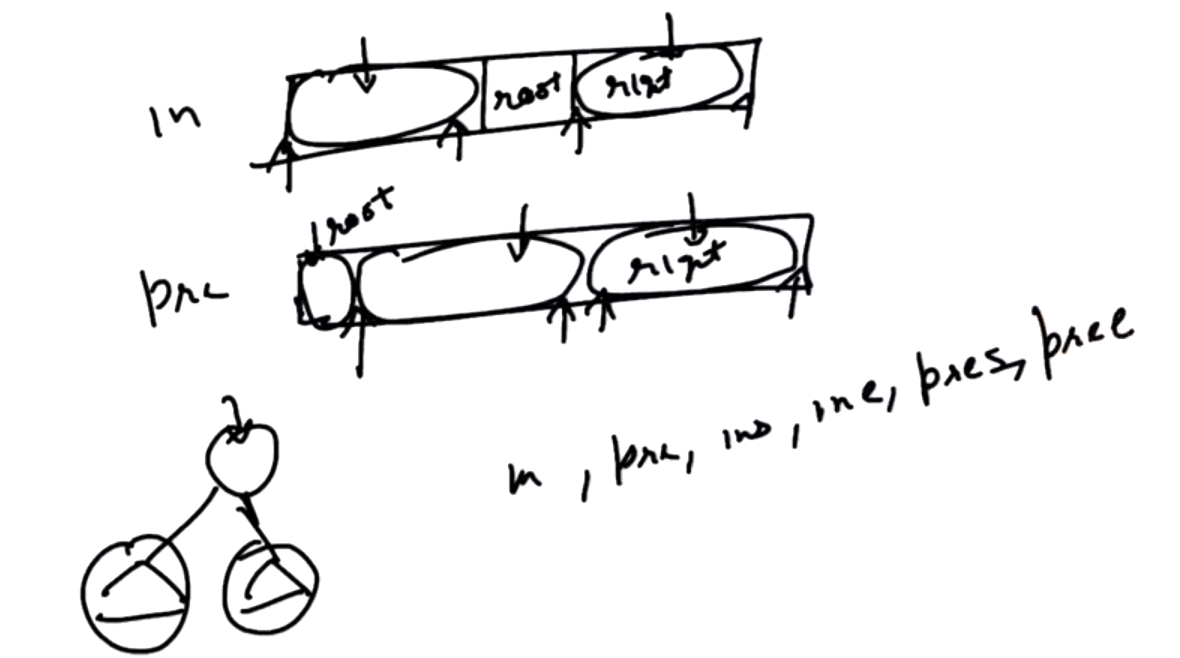 in
root
right
root
pre
right
in, pre, ins, ine, pres, pree